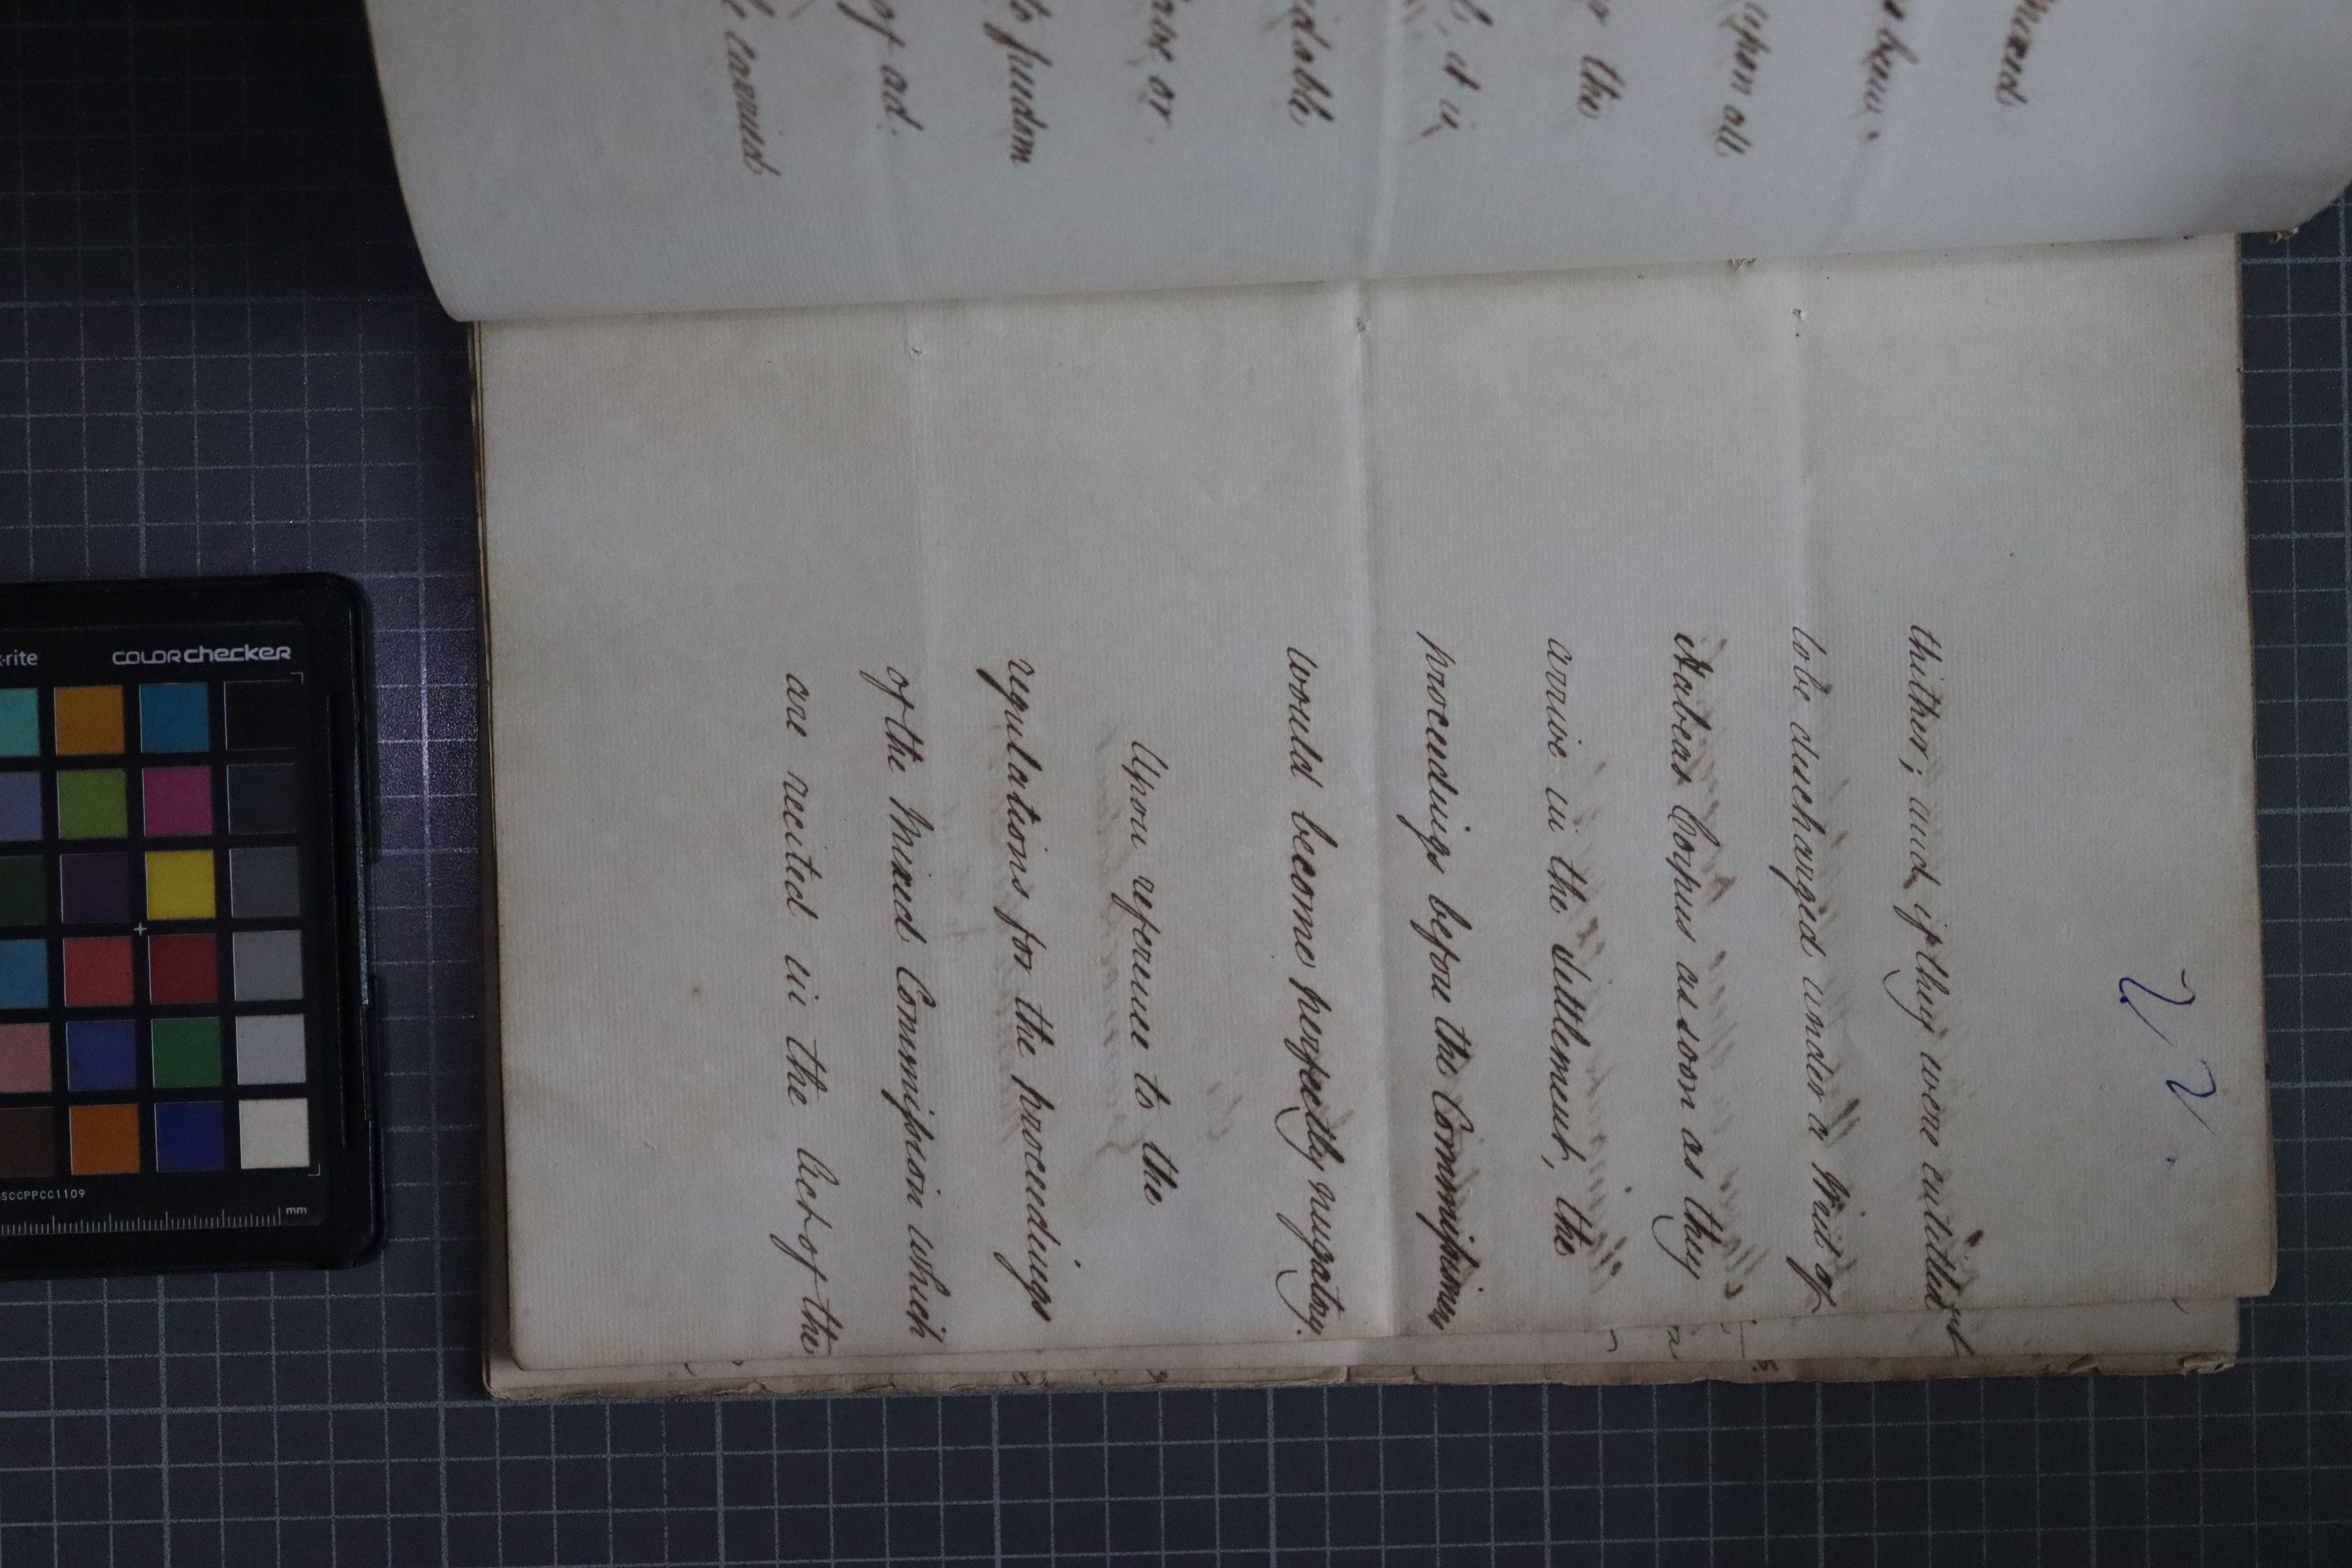 22.
thither; and if they were entitled
to be discharged under a Writ of
Habeas Corpus as soon as they
arrive in the Settlement, the
proceedings before the Commissioners
would become perfectly nugatory.
Upon reference to the
regulations for the proceedings
of the Mixed Commission which
are recited in the Act of the
Mixed
upon all
the
it is
or
to freedom
of ad.
carried
-rite
COLORchecker
SCCPPCC1109
mm